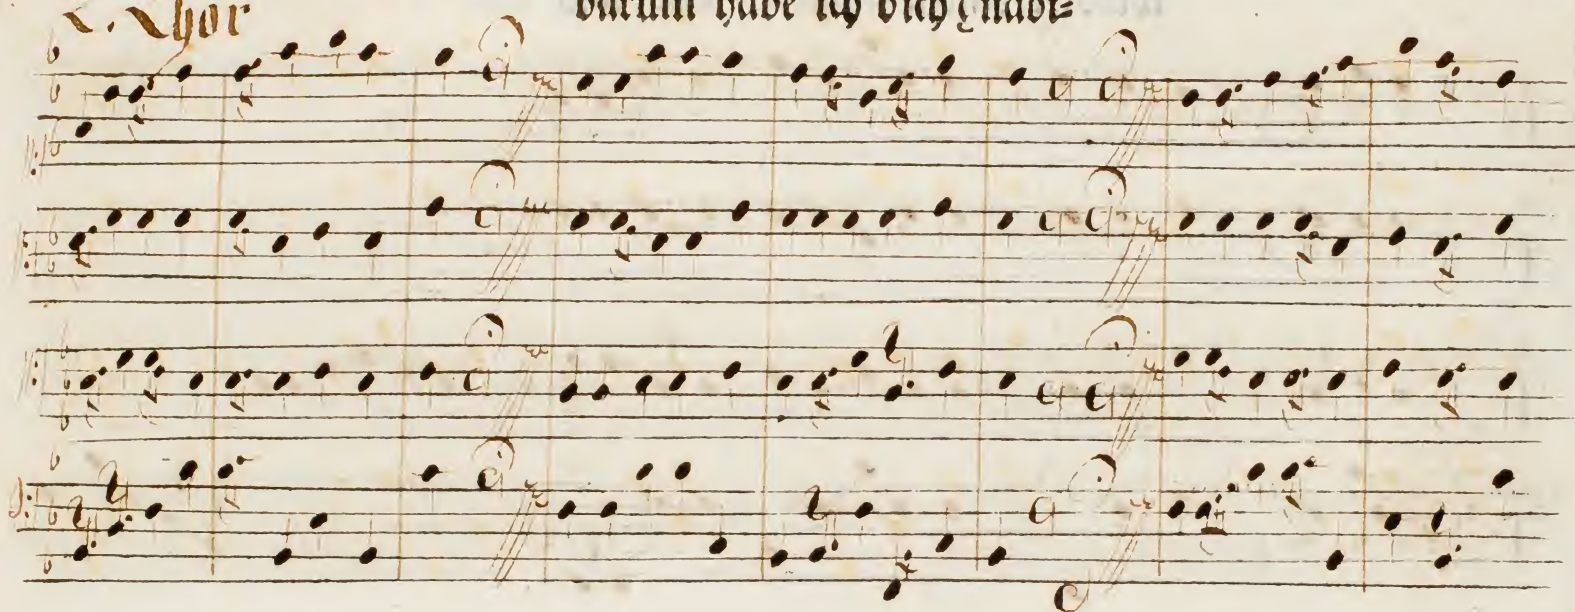 Chor
darum habe ich dich Gnädi=